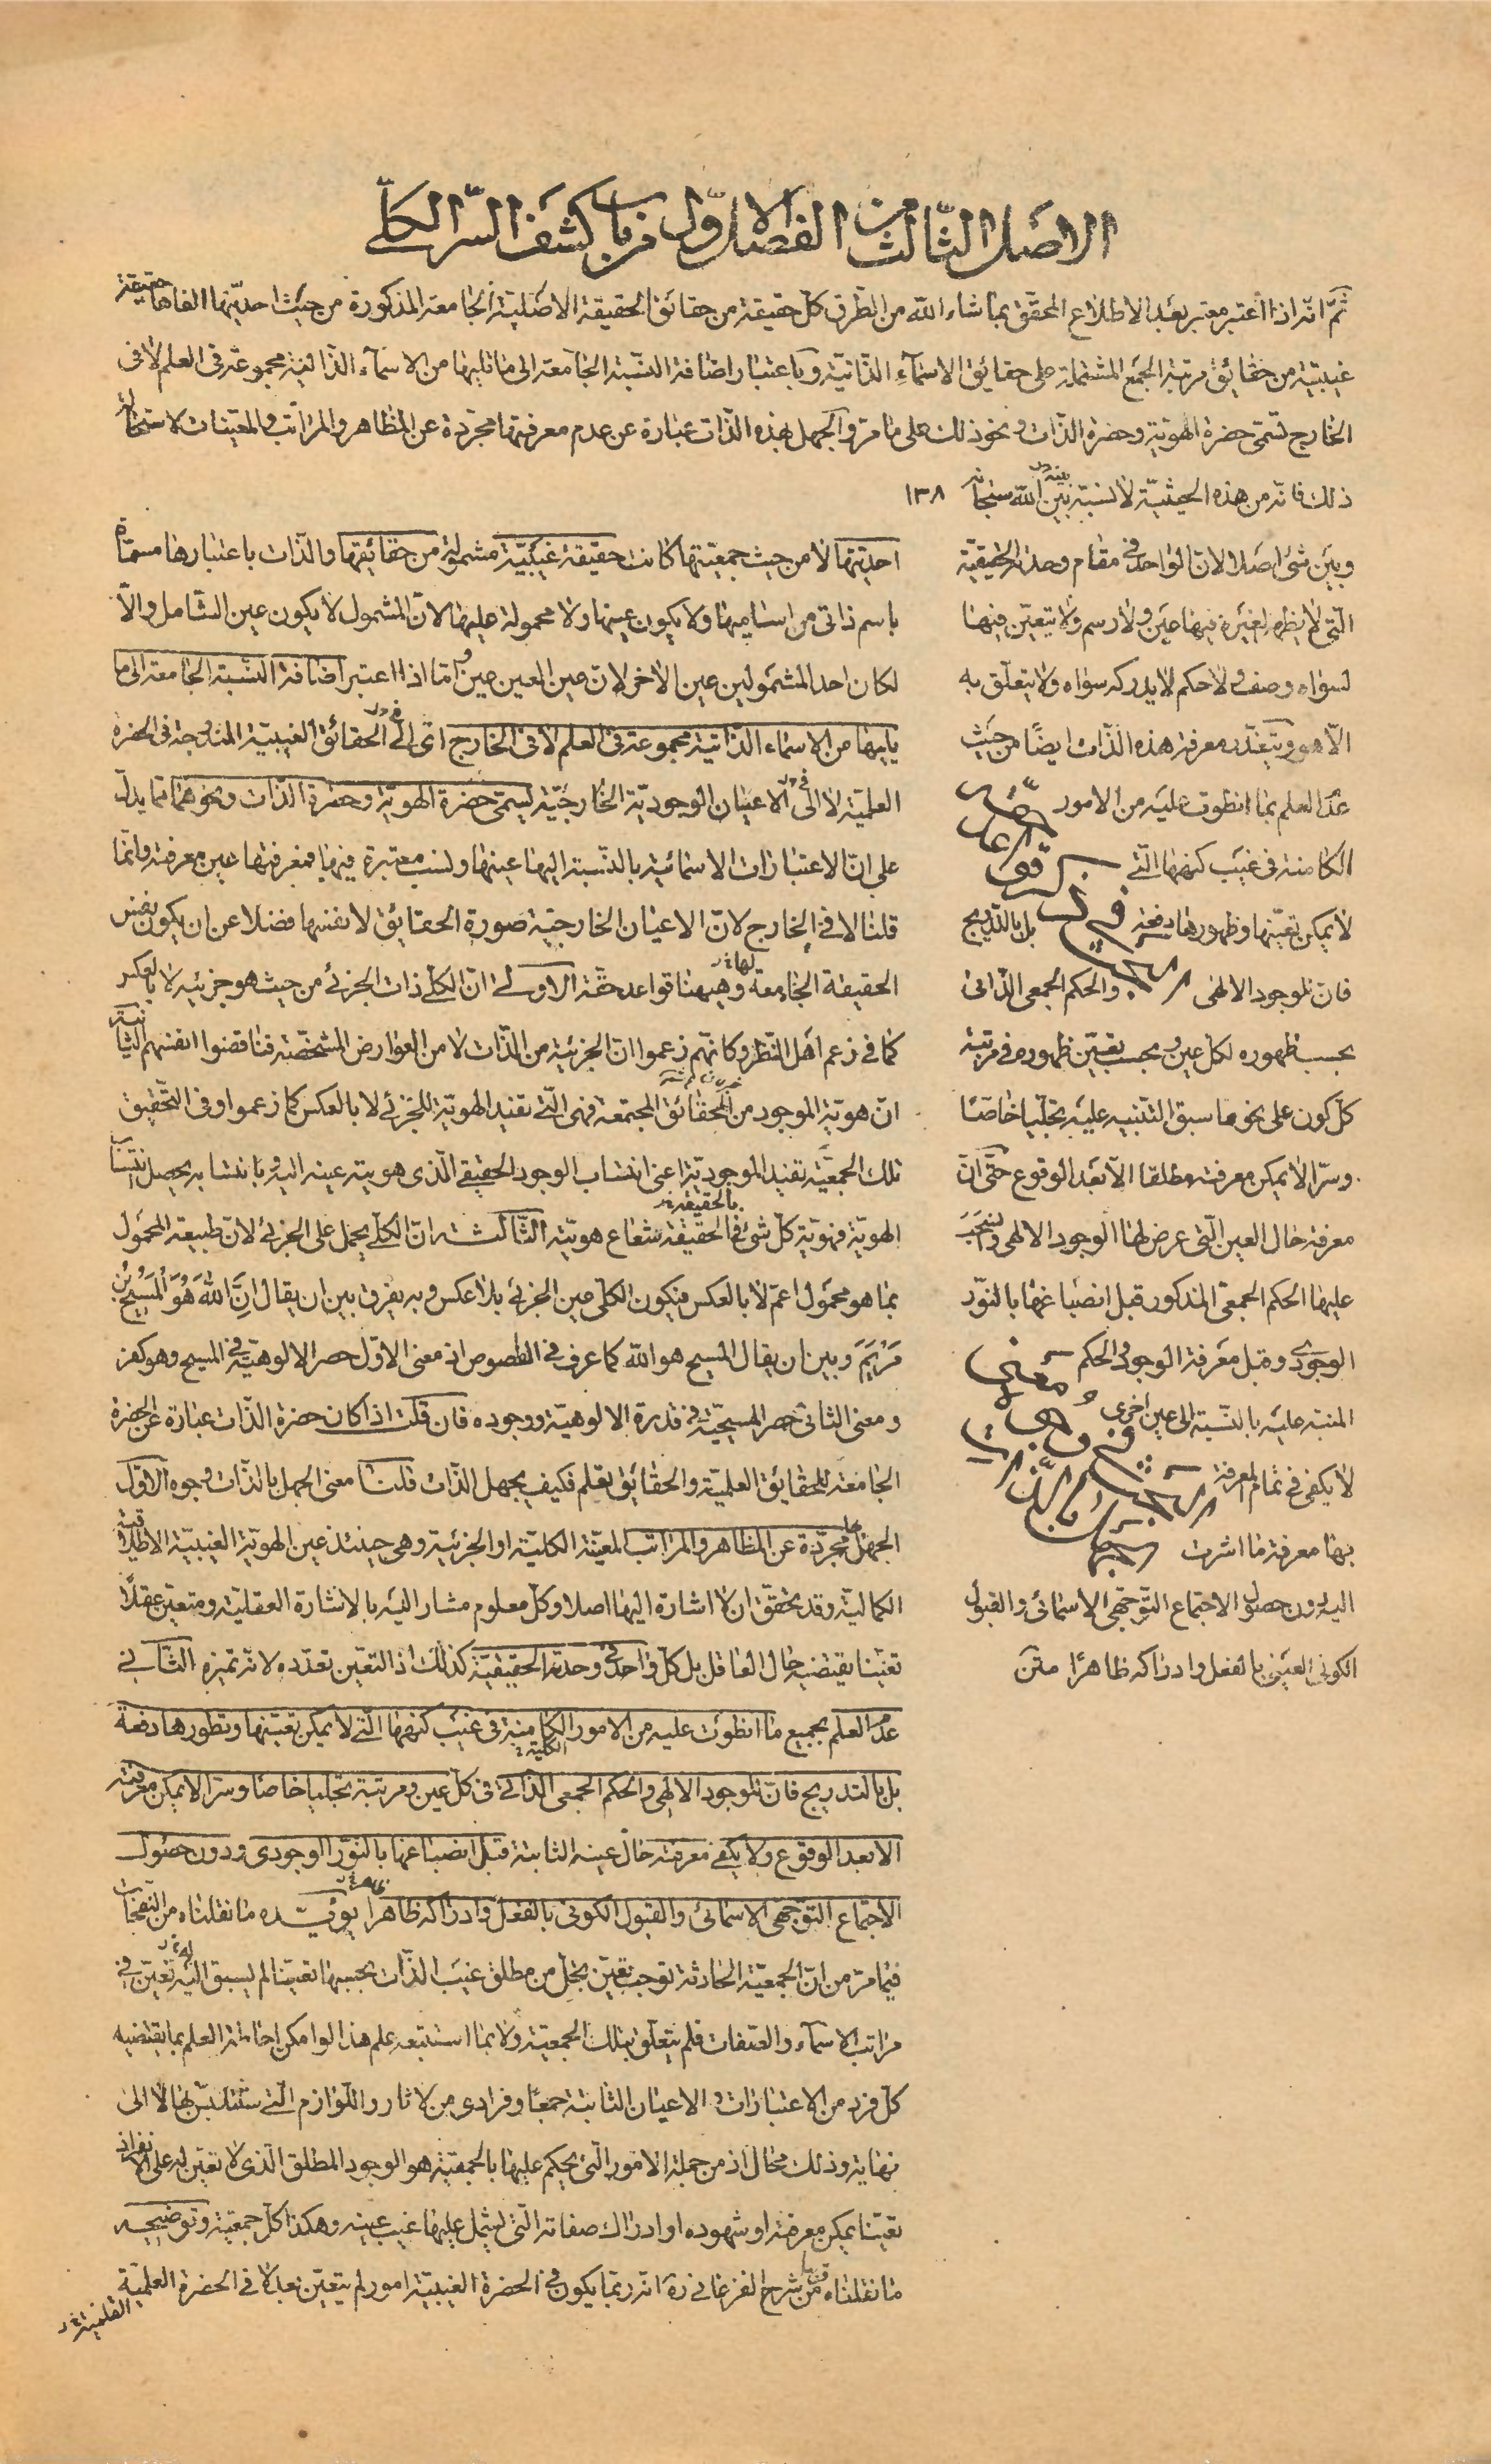 الاصل الثالث من الفصل الاول من باب كشف السر الكلى
ثمّ انّه اذا اعتبر معتبر بعد الاطلاع المحقّق بما شاء الله من الطّرق كلّ حقيقة من حقائق الحقيقة الاصليّة الجامعة المذكورة من حيث احديّتها الفاها حقيقة
غيبيّة من حقائق مرتبة الجمع المشتملة على حقايق الاسماء الذّاتيّة وباعتبار اضافة النّسبة الجامعة الى ما تليها من الاسماء الذّاتية مجموعة فى العلم لا فى
الخارج تسمّى حضرة الهويّة وحضرة الذّات ونحو ذلك على ما مرّ والجهل بهذه الذّات عبارة عن عدم معرفتها مجرّدة عن المظاهر والمراتب والمعيّنات لاستحالة
ذلك فانّه من هذه الحيثيّة لا نسبة بين الله سبحانه ١٣٨
وبين شئ اصلا لانّ الواحد فى مقام وحدته الحقيقيّة
التى لا يظهر لغيره فيها عين ولا رسم ولا يتعيّن فيها
لسواه وصف ولا حكم لا يدركه سواه ولا يتعلّق به
الّا هو ويتعذّر معرفة هذه الذّات ايضًا من حيث
عدم العلم بما انطوت عليه من الامور
الكامنة فى غيب كنهها الّتى
لا يمكن تعيّنها وظهورها دفعة بل بالتّدريج
فانّ للوجود الالهى والحكم الجمعى الذّاتى
بحسب ظهوره لكل عين وبحسب تعيّن ظهوره فى مرتبة
كلّ كون على نحو ما سبق التنبيه عليه تجلّيا خاصّا
وسرّا لا يمكن معرفته مطلقا الّا بعد الوقوع حتّى انّ
معرفة حال العين الّتى عرض لها الوجود الالهى وانسحب
عليها الحكم الجمعى المذكور قبل انصباغها بالنّور
الوجودى وقبل معرفة الوجود والحكم
المنبه عليه بالنّسبة الى عين اخرى
لا يكفى فى تمام المعرفة
بها معرفة ما اشرت
اليه دون حصول الاجتماع التّوجّهى الاسمائى والقبول
الكونى العينى بالفعل وادراكه ظاهرًا متن
احديّتها لا من حيث جمعيّتها كانت حقيقة غيبيّة مشمولة من حقائقها والذّات باعتبارها مسمّاة
باسم ذاتى من اساميها ولا يكون عينها ولا محمولة عليها لانّ المشمول لا يكون عين الشّامل والّا
لكان احد المشمولين عين الآخر لانّ عين العين عين وامّا اذا اعتبر اضافة النّسبة الجامعة الى ما
يليها من الاسماء الذّاتية مجموعة فى العلم لا فى الخارج اى الى الحقائق الغيبيّة المندرجة فى الحضرة
العلميّة لا الى الاعيان الوجوديّة الخارجيّة ليسمّى حضرة الهويّة وحضرة الذّات ونحوهما ممّا يدلّ
على انّ الاعتبارات الاسمائيّة بالنّسبة اليها عينها ولنسب معتبرة فيها فمعرفتها عين معرفته وانّما
قلنا لا فى الخارج لانّ الاعيان الخارجيّة صورة الحقايق لا نفسها فضلا عن ان يكون نفس
الحقيقة الجامعة لها وهيهنا قواعد حقّة الاولى انّ الكلّى ذات الجزئى من حيث هو جزئيه لا بالعكس
كما فى زعم اهل النّظر وكانّهم زعموا انّ الجزئية من الذّات لا من العوارض المشخّصة فناقضوا انفسهم الثّانية
انّ هويّة الموجود من الحقائق المجتمعة فهى الّتى تفيد الهويّة للجزئى لا بالعكس كما زعموا وفى التّحقيق
تلك الجمعيّة تفيد الموجوديّة اعنى انتساب الوجود الحقيقى الّذى هويته عينه اليه وبانتسابه يحصل انتساب
الهويّة فهويّة كلّ شئ فى الحقيقة شعاع هويّته الثّالثة انّ الكلّى يحمل على الجزئى لانّ طبيعة المحمول
بما هو محمول اعمّ لا بالعكس فيكون الكلّى عين الجزئى بلا عكس وبه يفرق بين ان يقال انّ الله هو المسيح بن
مريم وبين ان يقال المسيح هو الله كما عرف فى الفصوص اذ معنى الاوّل حصر الالوهيّة فى المسيح وهو كفر
ومعنى الثانى حصر المسيحيّة فى قدرة الالوهيّة ووجوده فان قلت اذا كان حضرة الذّات عبارة عن الحضرة
الجامعة للحقايق العلميّة والحقائق تعلم فكيف يجهل الذّات قلنا معنى الجهل بالذّات وجوه الاوّل
الجهل بها مجرّدة عن المظاهر والمراتب المعيّنة الكليّة او الجزئية وهى حينئذ عين الهويّة الغيبيّة الاطلاقية
الكماليّة وقد تحقّق ان لا اشارة اليها اصلا وكلّ معلوم مشار اليه بالاشارة العقليّة ومتعيّن عقلًا
تعيّنا يقتضيه حال العاقل بل كلّ واحد فى وحدته الحقيقيّة كذلك اذ التعيّن تعدّده لانّه تميزه الثّانى
عدم العلم بجميع ما انطوت عليه من الامور الكامنة فى غيب كنهها الّتى لا يمكن تعيّنها وتطورها دفعة
بل بالتدريج فانّ للوجود الالهى والحكم الجمعى الذّاتى فى كلّ عين ومرتبة تجلّيا خاصّا وسرّا لا يمكن معرفته
الا بعد الوقوع ولا يكفى معرفة حال عينه الثابتة قبل انصباغها بالنّور الوجودى ودون حصول
الاجتماع التّوجّهى الاسمائى والقبول الكونى بالفعل وادراكه ظاهرا يؤيّده ما نقلناه من النّفحات
فيما مرّ من انّ الجمعيّة الحادثة توجب تعيّن تجلّ من مطلق غيب الذّات بحسبها تعيّنا لم يسبق اليه تعيّن فى
مراتب الاسماء والصّفات فلم يتعلّق بتلك الجمعيّة ولا بما استتبعه علم هذا لو امكن احاطة العلم بما يقتضيه
كلّ فرد من الاعتبارات والاعيان الثابتة جمعًا وفرادى من الآثار واللّوازم الّتى ستتلبّس بها لا الى
نهاية وذلك محال اذ من جملة الامور الّتى يحكم عليها بالجمعيّة هو الوجود المطلق الّذى لا تعيّن له على الانفراد
تعيّنا يمكن معرفته او شهوده او ادراك صفاته الّتى يشمل عليها غيب عينه وهكذا كلّ جمعيّة وتوضيحه
ما نقلناه من شرح الفرغانى ره انّه ربّما يكون فى الحضرة الغيبيّة امور لم يتعيّن بعد لا فى الحضرة العلميّة